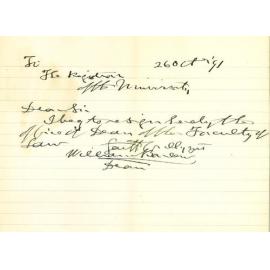 To
The Registrar 26 Oct '91
of the University
Dear Sir
I beg to resign hereby the
office of Dean of the Faculty of
Law
William Barlow
Dean